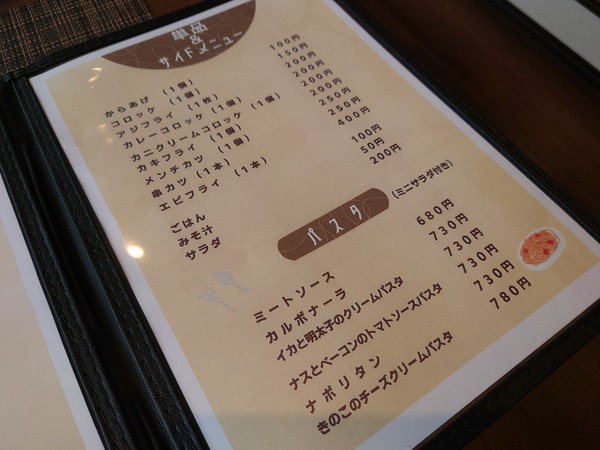 単品
&
サイドメニュー
からあげ（1個） 100円
コロッケ（1個） 150円
アジフライ（1枚） 200円
カレーコロッケ（1個） 200円
カニクリームコロッケ（1個） 200円
カキフライ（1個） 200円
メンチカツ（1個） 250円
串カツ（1本） 250円
エビフライ（1本） 400円
ごはん 100円
みそ汁 50円
サラダ 200円
パスタ （ミニサラダ付き）
ミートソース 680円
カルボナーラ 730円
イカと明太子のクリームパスタ 730円
ナスとベーコンのトマトソースパスタ 730円
ナポリタン 730円
きのこのチーズクリームパスタ 780円